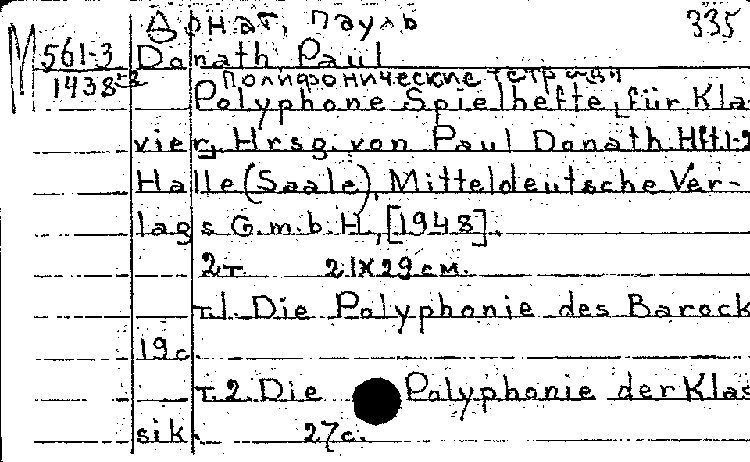 Донат, Пауль 335
М 561-3 Donath, Paul
1438 Полифонические тетради
Polyphone Spielhefte für Kla-
vier, Hrsg. von Paul Donath. Hft 1-2
Halle (Saale), Mitteldeutsche Ver-
lags G.m.b.H., [1948].
2 т. 21X29 см.
т.1. Die Polyphonie des Barock
19 с.
т.2. Die Polyphonie der Klas
sik. 27 с.